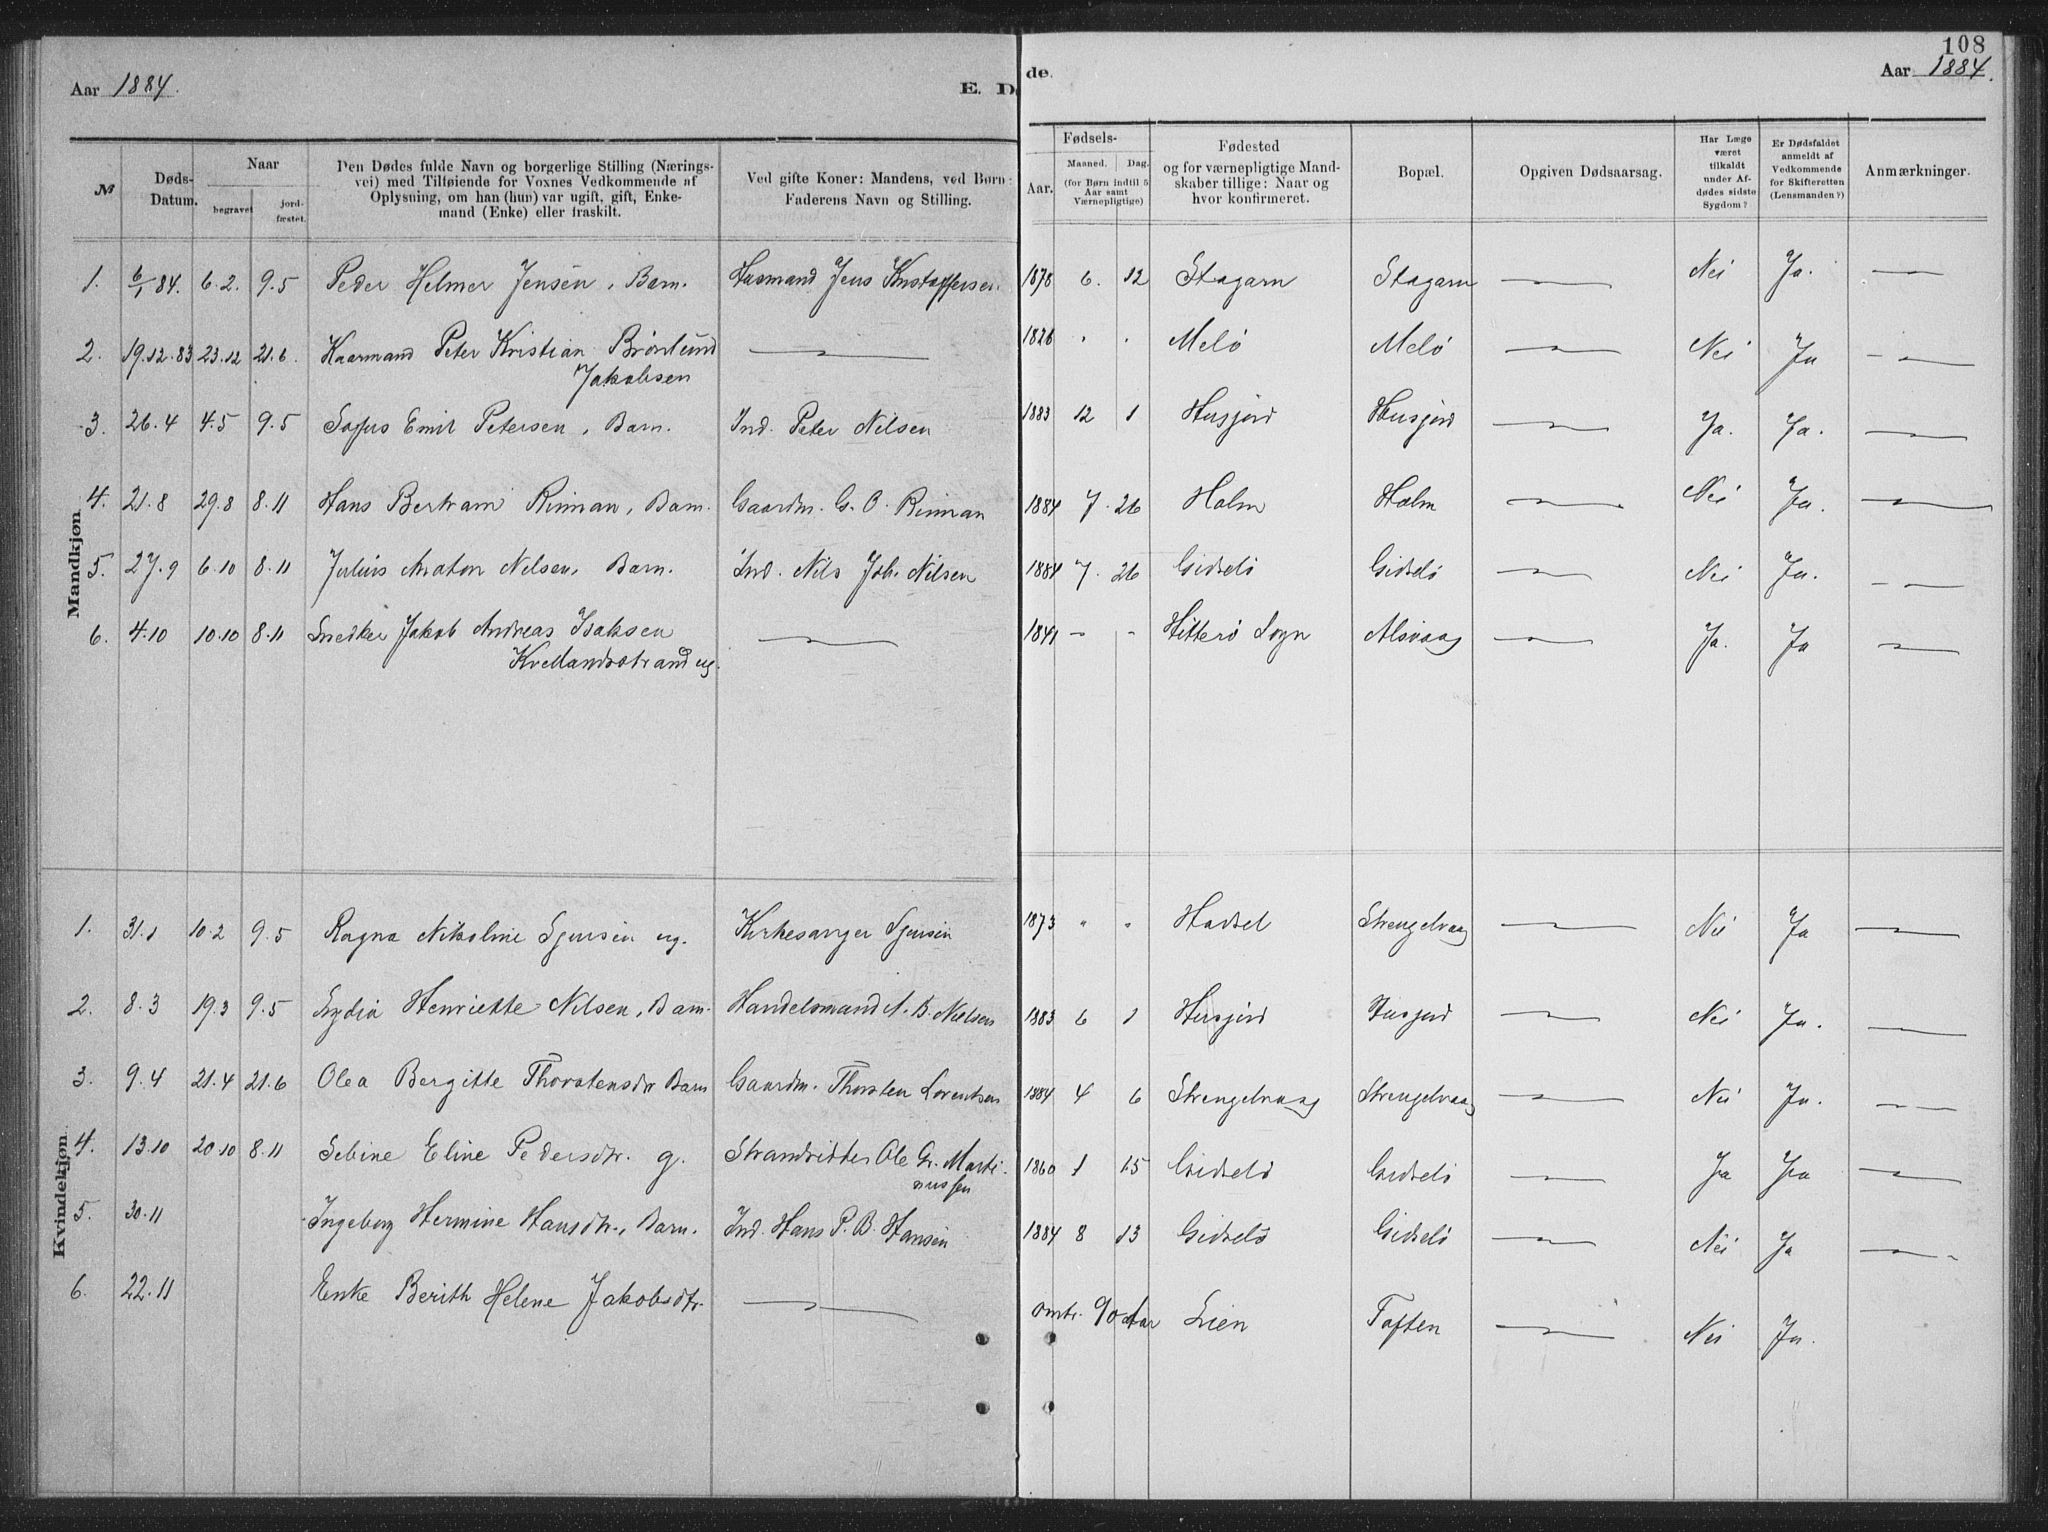 108
Aar 1884.
E. Dø
de.
Aar 1884.
№
Døds-Datum.
Naar
begravet
jordfæstet.
Den Dødes fulde Navn og borgerlige Stilling (Næringsvei) med Tilføiende for Voxnes Vedkommende af Oplysning, om han (hun) var ugift, gift, Enkemand (Enke) eller fraskilt.
Ved gifte Koner: Mandens, ved Børn: Faderens Navn og Stilling.
Fødsels-
Aar.
Maaned.
Dag.
(for Børn indtil 5 Aar samt Værnepligtige)
Fødested og for værnepligtige Mandskaber tillige: Naar og hvor konfirmeret.
Bopæl.
Opgiven Dødsaarsag.
Har Læge været tilkaldt under Afdødes sidste Sygdom?
Er Dødsfaldet anmeldt af Vedkommende for Skifteretten (Lensmanden?)
Anmærkninger.
Mandkjøn.
1. 6/1 84. 6.2. 9.5 Peder Helmer Jensen, Barn. Husmand Jens Kristoffersen 1878 6. 12 Stagarn Stagarn — Nei Ja. —
2. 19.12.83 23.12 21.6. Kaarmand Peter Kristian Brønlund — 1826 " " Melø Melø — Nei Ja —
Jakobsen
3. 26.4 4.5 9.5 Sofus Emil Petersen, Barn. Ind. Peter Nilsen 1883 12 1 Husjord Husjord — Ja. Ja. —
4. 21.8 29.8 8.11 Hans Bertram Rinnan, Barn. Gaardm. G. O. Rinnan 1884 7. 26 Holm Holm — Nei Ja. —
5. 27.9 6.10 8.11 Julius Anaton Nilsen, Barn. Ind. Nils Joh. Nilsen 1884 7. 26 Gidslø Gidslø — Nei Ja. —
6. 4.10 10.10 8.11 Snedker Jakob Andreas Isaksen — 1841 - - Hitterø Sogn Alsvaag — Ja. Ja —
Kvellandsstrand ug.
Kvindekjøn.
1. 31.1 10.2 9.5 Ragna Nikoline Sjursen ug. Kirkesanger Sjursen 1873 " " Hadsel Strengelvaag — Nei Ja —
2. 8.3 19.3 9.5 Lydia Henriette Nilsen, Barn. Handelsmand A. B. Nielsen 1883 6 1 Husjord Husjord — Nei Ja. —
3. 9.4 21.4 21.6 Olea Bergitte Thorstensdtr Barn Gaardm. Thorsten Lorentsen 1884 4 6 Strengelvaag Strengelvaag — Nei Ja. —
4. 13.10 20.10 8.11 Sebine Eline Pedersdtr. g. Strandsidder Ole Gr. Marti- 1860 1 15 Gidslø Gidslø — Ja Ja —
nussen
5. 30.11 Ingeborg Hermine Hansdtr., Barn. Ind. Hans P. B. Hansen 1884 8 13 Gidslø Gidslø — Nei Ja —
6. 22.11 Enke Berith Helene Jakobsdtr. — omtr. 90 Aar Lien Toften — Nei Ja.